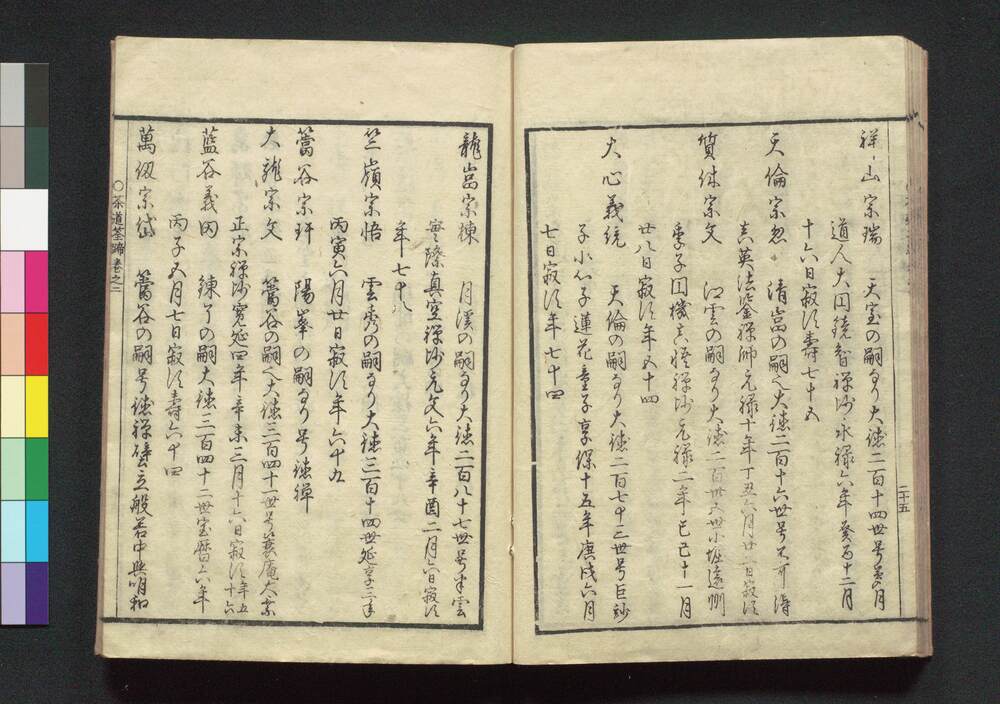 祥山宗瑞　天室の嗣なり大徳二百十四世号
道人大円鏡智禅師永禄六年癸亥十二月
十六日寂す寿七十五
天倫宗忽　清岩の嗣也大徳二百十六世号不可得
真英法鑒禅師元禄十年丁丑六月廿一日寂す
質休宗文　江雲の嗣なり大徳二百世小堀遠州
季子円機真悟禅師元禄二年己巳十一月
廿八日寂す年五十四
大心義統　天倫の嗣なり大徳二百七十三世号巨妙
子小心子蓮花童子享保十五年庚戌六月
七日寂す年七十四
二十五
龍岩宗棟　月溪の嗣なり大徳二百八十七世号半雲
実際真空禅師元文六年辛酉二月六日寂す
年七十八
竺嶺宗悟　雲秀の嗣なり大徳三百十四世延享三年
丙寅六月廿日寂す年六十九
篝谷宗玕　陽峯の嗣なり号徳禅
大龍宗文　篝谷の嗣也大徳三百四十一世号蓑庵太素
正宗禅師寛延四年辛未三月十六日寂す年五十六
藍谷義田　練の嗣大徳三百四十二世宝暦六年
丙子五月七日寂す寿六十四
萬仭宗岱　篝谷の嗣号徳禅 般若中興明和
○茶道筌蹄巻之二